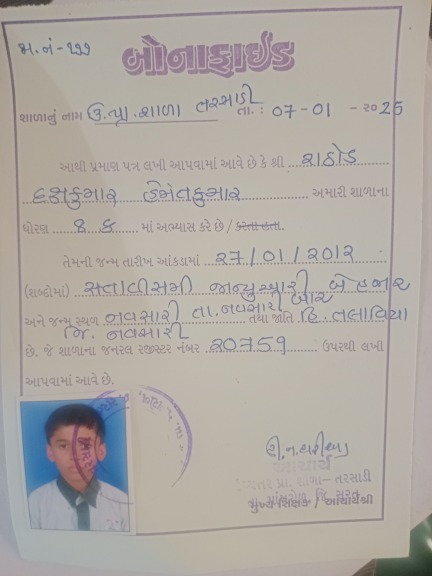 બોનાફાઈડ
શાળાનું નામ ઉ.પ્રા. શાળા તરસાડી તા. : 07-01 - ૨૦25
આથી પ્રમાણ પત્ર લખી આપવામાં આવે છે કે શ્રી રાઠોડ
દક્ષકુમાર હેમંતકુમાર અમારી શાળાના
ધોરણ ૪ ક માં અભ્યાસ કરે છે / કરતા હતા.
તેમની જન્મ તારીખ આંકડામાં ૨7/01/૨01૨
(શબ્દોમાં) સત્તાવીસમી જાન્યુઆરી બે હજાર બાર
અને જન્મ સ્થળ નવસારી તા. નવસારી જિ. નવસારી તથા જાતિ હિ. તલાવિયા
છે. જે શાળાના જનરલ રજીસ્ટર નંબર ૨0759 ઉપરથી લખી
આપવામાં આવે છે.
આચાર્ય
પ્રા. શાળા - તરસાડી
મુખ્ય શિક્ષક / આચાર્યશ્રી